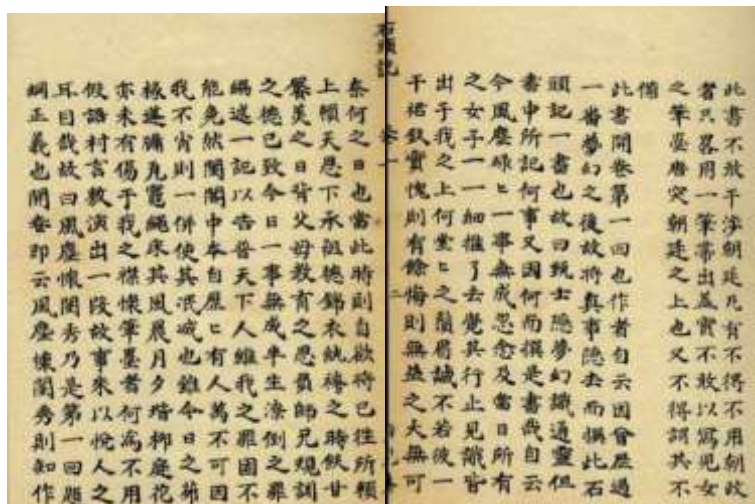 此書不敢干涉朝廷凡有不得不用朝政
者只畧用一筆帶出蓋實不敢以寫兒女
之筆墨唐突朝廷之上也又不得謂其不
備
此書開卷第一回也作者自云因曾歷過
一番夢幻之後故將真事隱去而撰此石
頭記一書也故曰甄士隱夢幻識通靈但
書中所記何事又因何而撰是書哉自云
今風塵碌ヒ一事無成忽念及當日所有
之女子一一細推了去覺其行止見識皆
出于我之上何堂ヒ之鬚眉誠不若彼一
干裙釵實愧則有餘悔則無益之大無可
石頭記 卷一 二
奈何之日也當此時則自欲將已往所賴
上賴天恩下承祖德錦衣紈袴之時飫甘
饜美之日背父母教育之恩負師兄規訓
之德已致今日一事無成半生潦倒之罪
編述一記以告普天下人雖我之罪固不
能免然閨閣中本自歷ヒ有人萬不可因
我不肖則一併使其泯滅也雖今日之茆
椽蓬牖瓦竈繩床其風晨月夕堦柳庭花
亦未有傷于我之襟懷筆墨者何為不用
假語村言敷演出一段故事來以悅人之
耳目哉故曰風塵懷閨秀乃是第一回題
綱正義也開卷即云風塵懷閨秀則知作